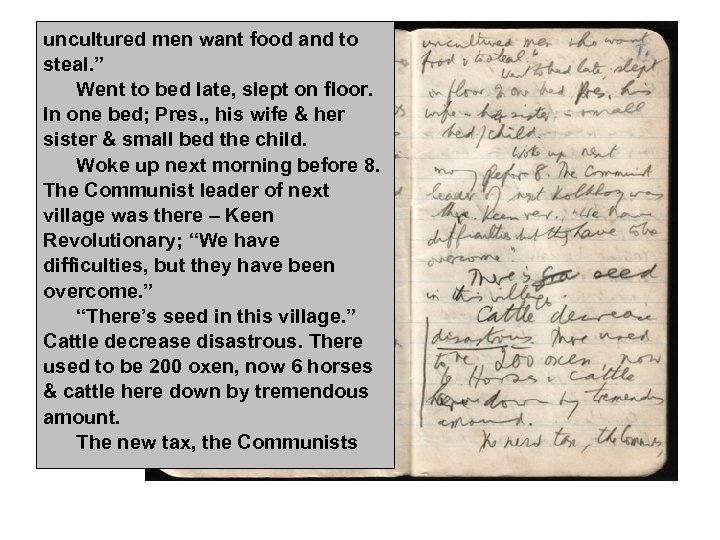 uncultured men want food and to
steal. ”
Went to bed late, slept on floor.
In one bed; Pres. , his wife & her
sister & small bed the child.
Woke up next morning before 8.
The Communist leader of next
village was there – Keen
Revolutionary; “We have
difficulties, but they have been
overcome. ”
“There’s seed in this village. ”
Cattle decrease disastrous. There
used to be 200 oxen, now 6 horses
& cattle here down by tremendous
amount.
The new tax, the Communists
uncultured men who want
food & to steal."
Went to bed late, slept
on floor. In one bed Pres, his
wife & her sister, & small
bed / child.
Woke up next
before 8. The Communist
leader of next was
there. Keen rev., "We have
difficulties but they have to be
overcome"
There is seed
in this village.
Cattle decrease
disastrous. There used
to be 200 oxen, now
6 Horses & cattle
down by tremendous
amount.
The new tax, the